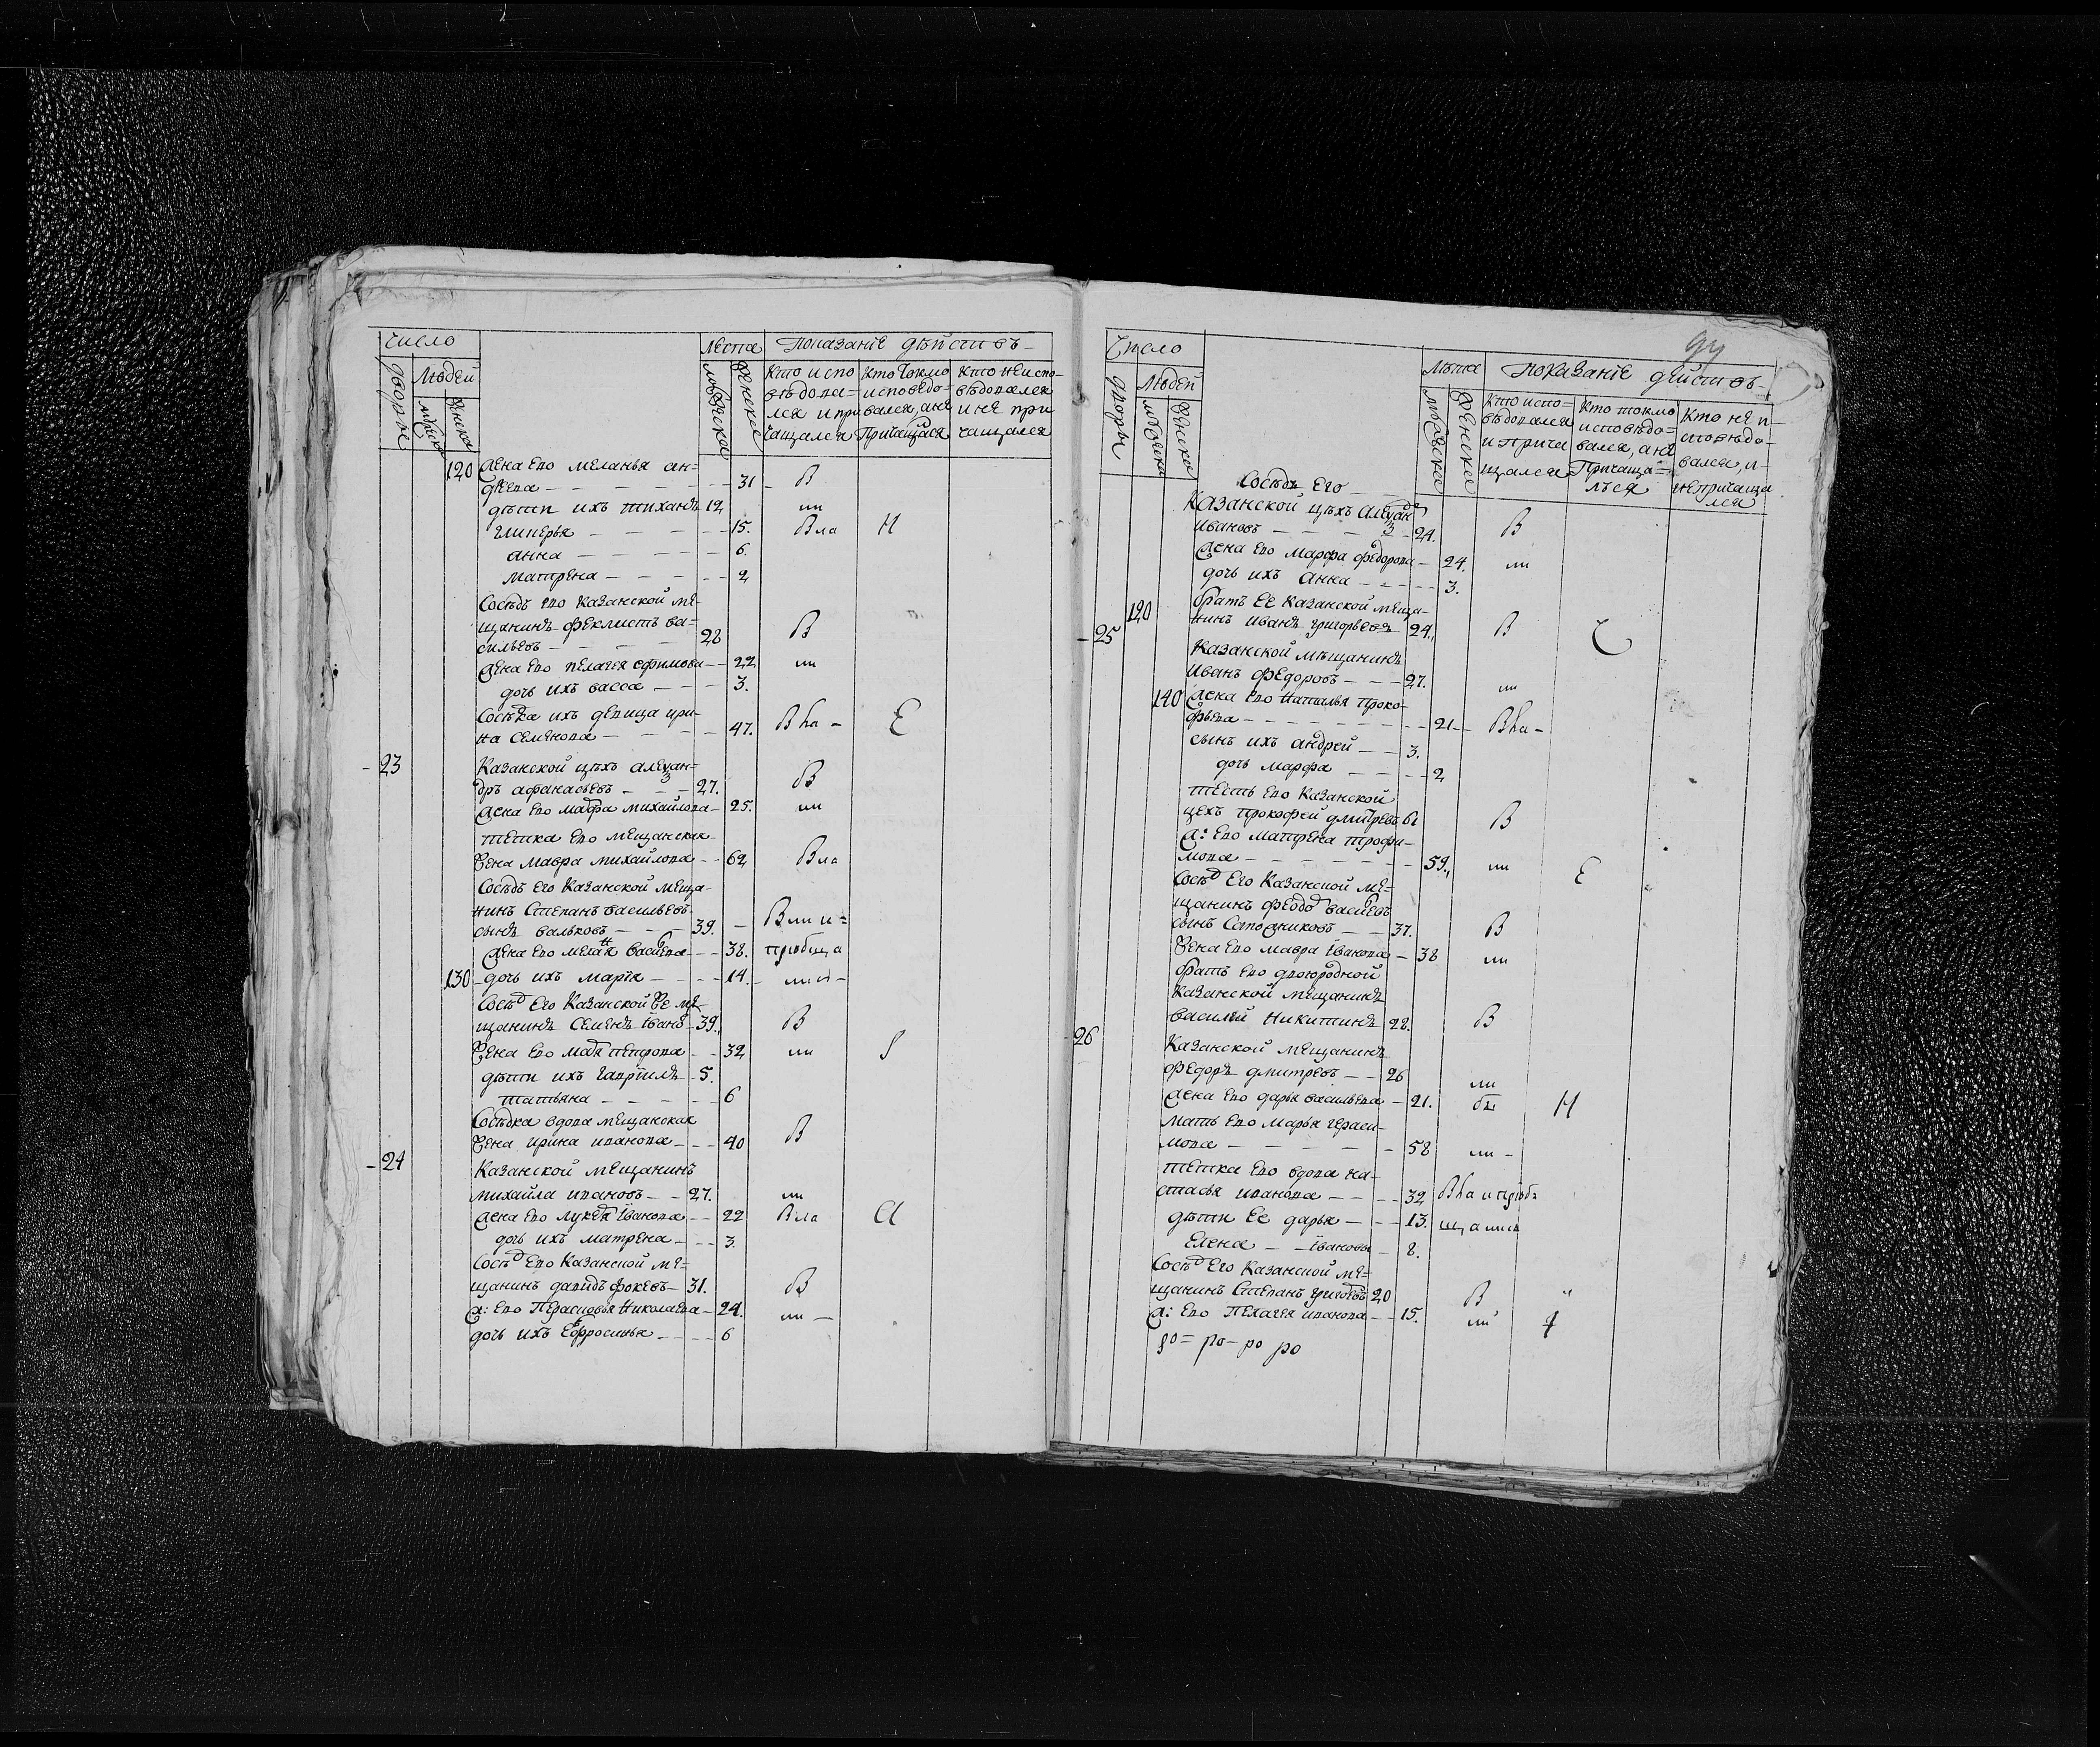 число
лета
показание действъ
дворы
людей
мужска
женска
мужеска
женска
кто испо
ведова=
лся и при
чащался
кто токмо
исповедо=
вался, а не
причащался
кто неиспо-
ведовался
и не при
чащался
120 жена ево меланья ан=
дреева — 31 — В
дети ихъ тиханъ 12 ли
гликерья — 15. Вла Н
анна — 6.
матрена — 2
Соседъ ево казанской ме-
щанинъ феклистъ ва=
сильевъ — 28 В
жена ево пелагея ефимова — 22 ли
дочь ихъ васса — 3.
соседка ихъ девица ири-
на семенова — 47. Е
23 казанской цехъ алеѯан-
дръ афанасьевъ — 27. В
жена ево марфа михайлова — 25. ли
тетка ево мещанская
жена мавра михайлова — 62 Вла
Соседъ его казанской меща-
нинъ степанъ васильевъ
сынъ вальковъ — 39. — Вли и=
жена ево васильева — 38. приобща
130 дочь ихъ марья — 14. лися
сосед его казанской
щанинъ семенъ иванов 39. В
жена ево петрова — 32 ли
дети ихъ гаврилъ 5.
татьяна — 6
соседка вдова мещанская
жена ирина иванова — 40 В
24 казанской мещанинъ
михайла ивановъ — 27. ли
жена ево лукерья иванова — 22 Вла
дочь ихъ матрена — 3.
сосед ево казанской ме=
щанинъ давидъ фокеевъ — 31. В
ж: ево парасковья николаева — 24. ли —
дочь ихъ ефросинья — 6
94
число
лета
показание действъ
дворы
людей
мужеска
женска
мужеска
женска
кто испо=
ведовался
и прича
щался
кто токмо
исповедо=
вался, а не
причаща=
лъся
кто не и-
споведо-
вался, и-
непричаща
лся
соседъ его
казанской цехъ алеѯандръ
ивановъ — 24. В
жена ево марфа федорова — 24. ли
дочь ихъ анна — 3.
120 братъ ее казанской меща-
25 нинъ иванъ григорьевъ 24. В
казанской мещанинъ
иванъ федоровъ — 27. ли
140 жена ево наталья проко-
фьева — 21
сынъ ихъ андрей — 3.
дочь марфа — 2
тесть ево казанской
цехъ прокофей дмитревъ 61 В
ж: ево матрена трофи-
мова — 59. ли Е
сосед его казанской ме=
щанинъ федор васильевъ
сынъ сапожниковъ — 37. В
жена ево мавра иванова — 38 ли
братъ ево двоюродной
казанской мещанинъ
василей никитинъ 28. В
26 казанской мещанинъ
федоръ дмитревъ — 26 ли
жена ево дарья васильева — 21. Н
мать ево марья гераси-
мова — 58 ли —
тетка ево вдова на-
стасья иванова — 32
дети ее дарья — 13. щались
елена — ивановы 8.
сосед его казанской ме=
щанинъ степанъ григорьевъ 20 В
ж: ево пелагея иванова — 15. ли